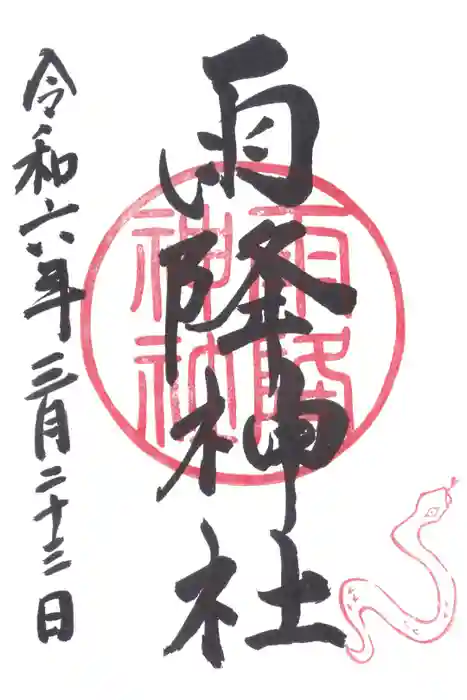 雨隆神社
雨隆
神社
令和六年三月二十三日